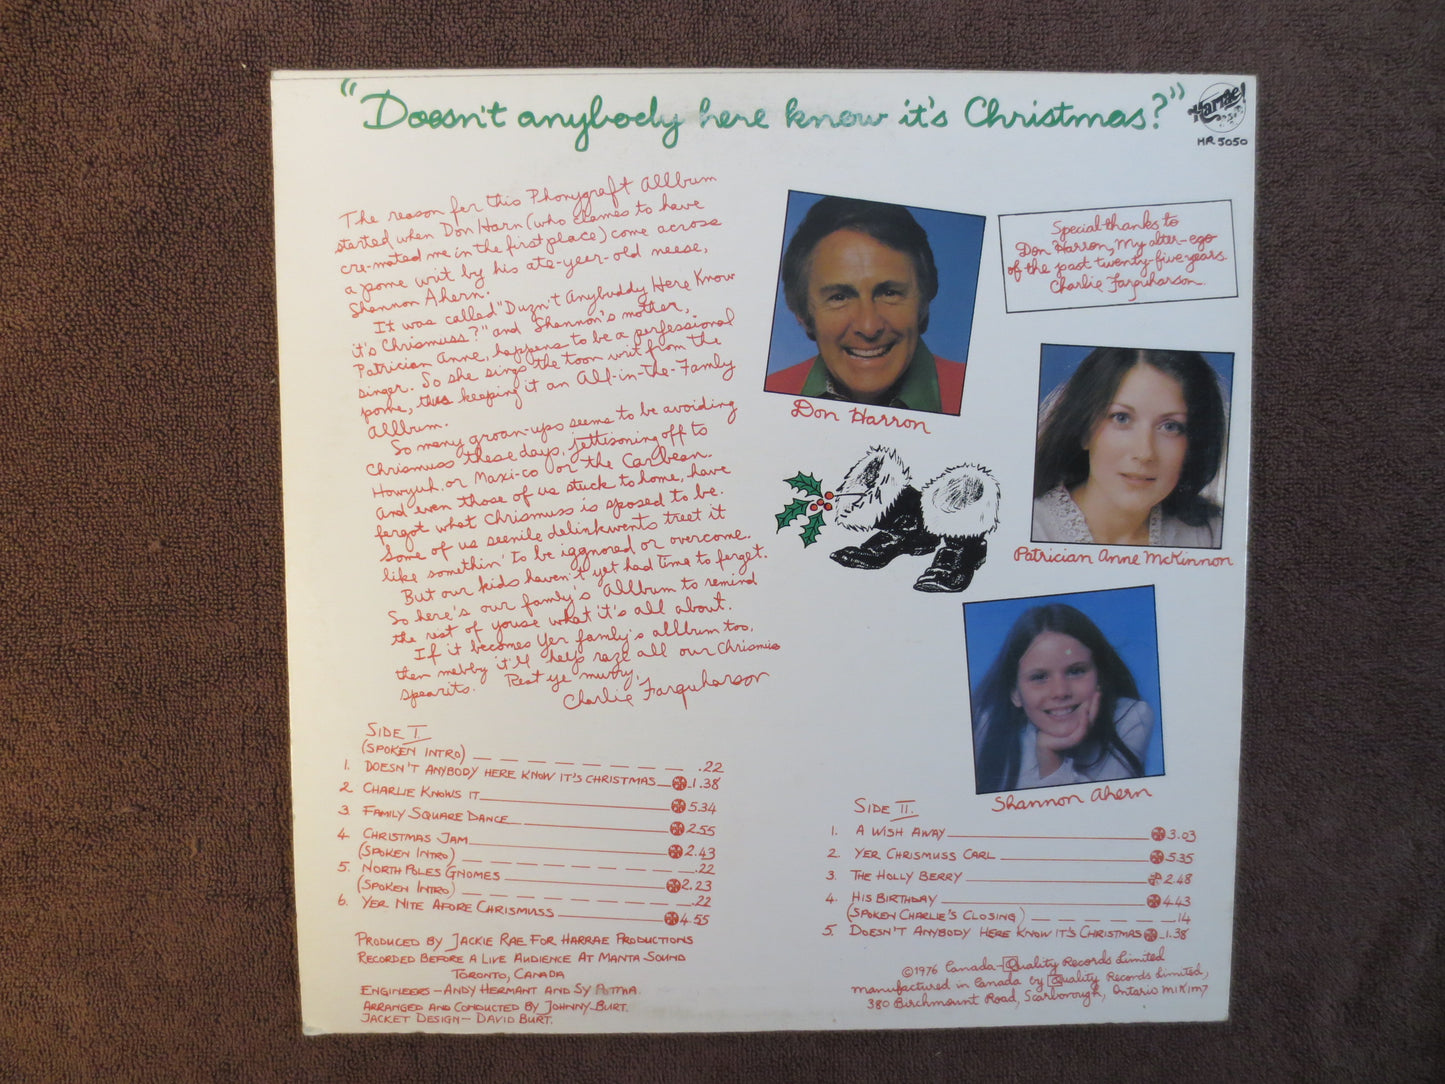 "Doesn't anybody here know it's Christmas?"
Harrae!
HR 5050
The reason fer this Phonygraft Allbum
started when Don Harn (who clames to have
cre-mated me in the first place) come across
a pome writ by his ate-year-old neese,
Shannon Ahern.
It was called "Duzn't Anybuddy Here Know
it's Chrismuss?" and Shannon's mother,
Patrician Anne, happens to be a perfessional
singer. So she sings the toon writ from the
pome, thus keeping it an All-in-the-Famly
Allbum.
So many groan-ups seems to be avoiding
Chrismuss these days, jettisoning off to
Howyuh, or Maxi-co or the Caribean.
And even those of us stuck to home, have
fergot what Chrismuss is sposed to be.
Some of us seenile delinkwents treet it
like somethin' to be iggnored or overcome.
But our kids haven't yet had time to ferget.
So here's our famly's Allbum to remind
the rest of youse what it's all about.
If it becomes yer famly's allbum too,
then mebby it'll help raze all our Chrismuss
spearits. Rest ye murry,
Charlie Farquharson
Don Harron
Special thanks to
Don Harron, My alter-ego
of the past twenty-five years.
Charlie Farquharson.
Patrician Anne McKinnon
Shannon Ahern
SIDE I
(SPOKEN INTRO) .22
1. DOESN'T ANYBODY HERE KNOW IT'S CHRISTMAS 1.38
2 CHARLIE KNOWS IT 5.34
3 FAMILY SQUARE DANCE 2.55
4. CHRISTMAS JAM 2.43
(SPOKEN INTRO) .22
5. NORTH POLES GNOMES 2.23
(SPOKEN INTRO) .22
6. YER NITE AFORE CHRISMUSS 4.55
PRODUCED BY JACKIE RAE FOR HARRAE PRODUCTIONS
RECORDED BEFORE A LIVE AUDIENCE AT MANTA SOUND
TORONTO, CANADA
ENGINEERS - ANDY HERMANT AND SY POTMA
ARRANGED AND CONDUCTED BY JOHNNY BURT.
JACKET DESIGN - DAVID BURT.
SIDE II.
1. A WISH AWAY 3.03
2. YER CHRISMUSS CARL 5.35
3. THE HOLLY BERRY 2.48
4. HIS BIRTHDAY 4.43
(SPOKEN CHARLIE'S CLOSING) .14
5. DOESN'T ANYBODY HERE KNOW IT'S CHRISTMAS 1.38
©1976 Canada-Quality Records Limited
manufactured in Canada by Quality Records Limited,
380 Birchmount Road, Scarborough, Ontario M1K1M7